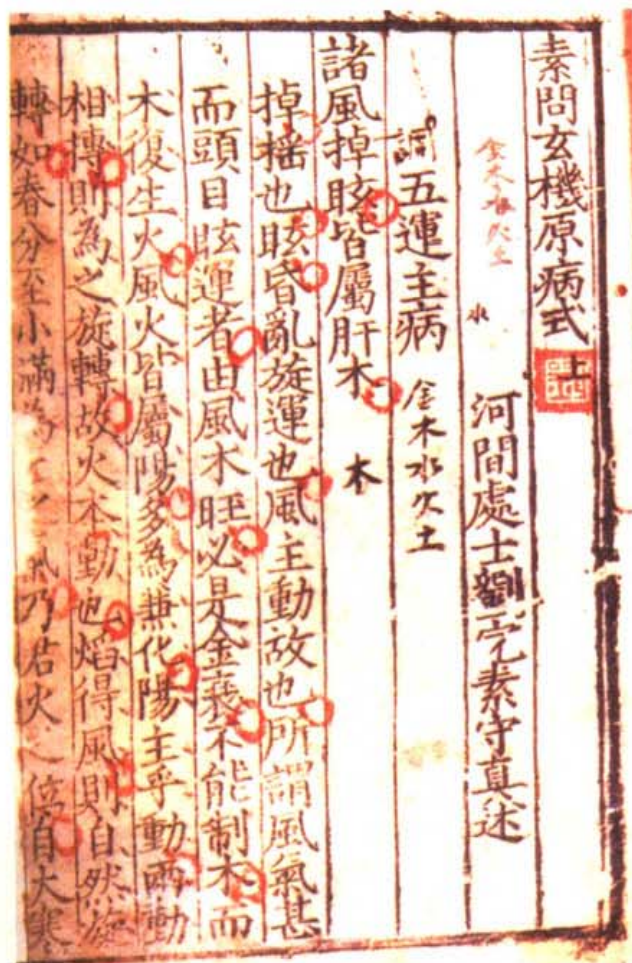 素問玄機原病式上
金木水火土
水
河間處士劉完素守真述
五運主病
金木水火土
諸風掉眩皆屬肝木
木
掉搖也眩昏亂旋運也風主動故也所謂風氣甚
而頭目眩運者由風木旺必是金衰不能制木而
木復生火風火皆屬陽多為兼化陽主乎動兩動
相摶則為之旋轉故火本動也焰得風則自然旋
轉如春分至小滿為之氣乃君火之位自大寒